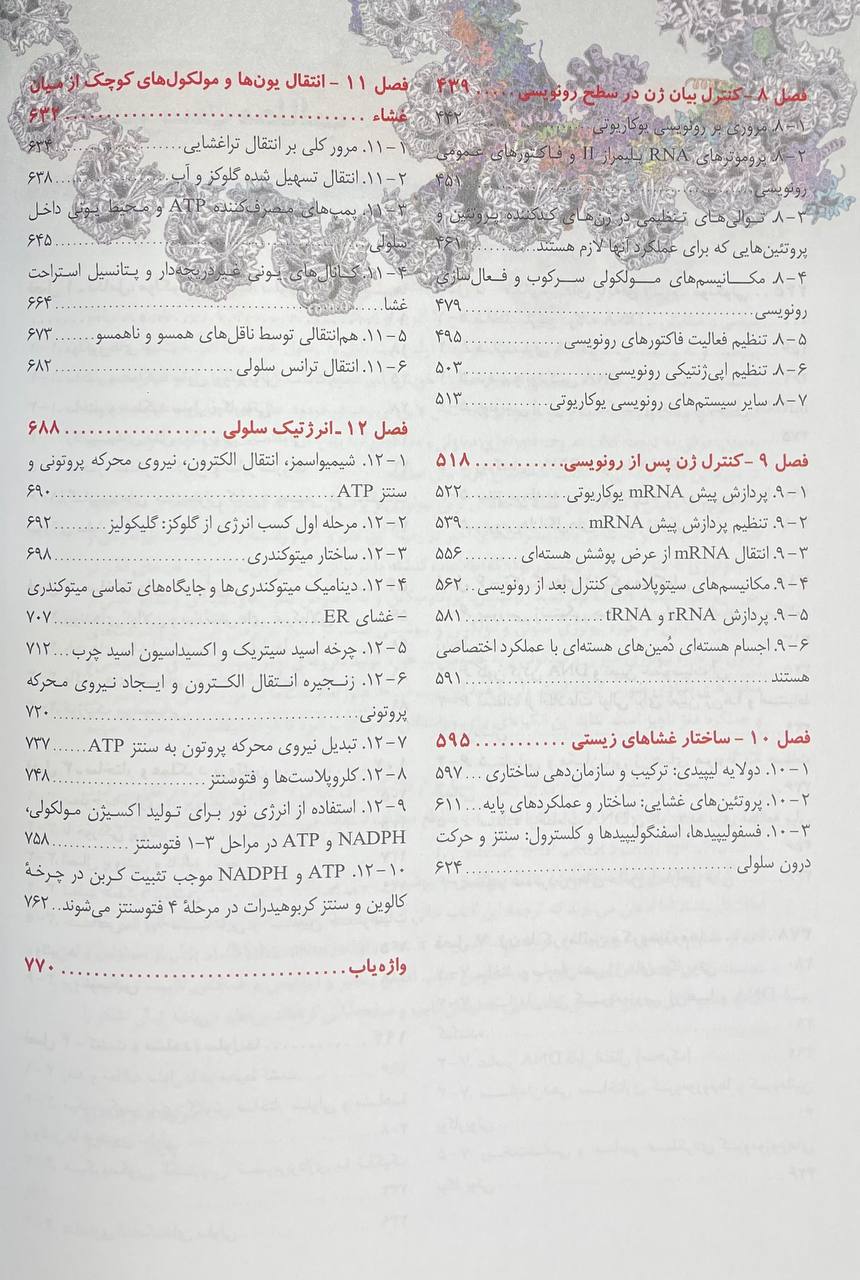 فصل ۸ - کنترل بیان ژن در سطح رونویسی ..... ۴۳۹
۸-۱. مروری بر رونویسی یوکاریوتی ..... ۴۴۲
۸-۲. پروموترهای RNA پلیمراز II و فاکتورهای عمومی
رونویسی ..... ۴۵۱
۸-۳. توالی‌های تنظیمی در ژن‌های کدکننده پروتئین و
پروتئین‌هایی که برای عملکرد آنها لازم هستند ..... ۴۶۱
۸-۴. مکانیسم‌های مولکولی سرکوب و فعال‌سازی
رونویسی ..... ۴۷۹
۸-۵. تنظیم فعالیت فاکتورهای رونویسی ..... ۴۹۵
۸-۶. تنظیم اپی‌ژنتیکی رونویسی ..... ۵۰۳
۸-۷. سایر سیستم‌های رونویسی یوکاریوتی ..... ۵۱۳
فصل ۹ - کنترل ژن پس از رونویسی ..... ۵۱۸
۹-۱. پردازش پیش mRNA یوکاریوتی ..... ۵۲۲
۹-۲. تنظیم پردازش پیش mRNA ..... ۵۳۹
۹-۳. انتقال mRNA از عرض پوشش هسته‌ای ..... ۵۵۶
۹-۴. مکانیسم‌های سیتوپلاسمی کنترل بعد از رونویسی .. ۵۶۲
۹-۵. پردازش rRNA و tRNA ..... ۵۸۱
۹-۶. اجسام هسته‌ای دُمین‌های هسته‌ای با عملکرد اختصاصی
هستند ..... ۵۹۱
فصل ۱۰ - ساختار غشاهای زیستی ..... ۵۹۵
۱۰-۱. دولایه لیپیدی: ترکیب و سازمان‌دهی ساختاری ... ۵۹۷
۱۰-۲. پروتئین‌های غشایی: ساختار و عملکردهای پایه ... ۶۱۱
۱۰-۳. فسفولیپیدها، اسفنگولیپیدها و کلسترول: سنتز و حرکت
درون سلولی ..... ۶۲۴
فصل ۱۱ - انتقال یون‌ها و مولکول‌های کوچک از میان
غشاء ..... ۶۳۲
۱۱-۱. مرور کلی بر انتقال تراغشایی ..... ۶۳۴
۱۱-۲. انتقال تسهیل شده گلوکز و آب ..... ۶۳۸
۱۱-۳. پمپ‌های مصرف‌کننده ATP و محیط یونی داخل
سلولی ..... ۶۴۵
۱۱-۴. کانال‌های یونی غیردریچه‌دار و پتانسیل استراحت
غشا ..... ۶۶۴
۱۱-۵. هم‌انتقالی توسط ناقل‌های همسو و ناهمسو ..... ۶۷۳
۱۱-۶. انتقال ترانس سلولی ..... ۶۸۲
فصل ۱۲ - انرژتیک سلولی ..... ۶۸۸
۱۲-۱. شیمیواسمز، انتقال الکترون، نیروی محرکه پروتونی و
سنتز ATP ..... ۶۹۰
۱۲-۲. مرحله اول کسب انرژی از گلوکز: گلیکولیز ..... ۶۹۲
۱۲-۳. ساختار میتوکندری ..... ۶۹۸
۱۲-۴. دینامیک میتوکندری‌ها و جایگاه‌های تماسی میتوکندری
- غشای ER ..... ۷۰۷
۱۲-۵. چرخه اسید سیتریک و اکسیداسیون اسید چرب ... ۷۱۲
۱۲-۶. زنجیره انتقال الکترون و ایجاد نیروی محرکه
پروتونی ..... ۷۲۰
۱۲-۷. تبدیل نیروی محرکه پروتون به سنتز ATP ..... ۷۳۷
۱۲-۸. کلروپلاست‌ها و فتوسنتز ..... ۷۴۸
۱۲-۹. استفاده از انرژی نور برای تولید اکسیژن مولکولی،
NADPH و ATP در مراحل ۳-۱ فتوسنتز ..... ۷۵۸
۱۲-۱۰. ATP و NADPH موجب تثبیت کربن در چرخهٔ
کالوین و سنتز کربوهیدرات در مرحلهٔ ۴ فتوسنتز می‌شوند .. ۷۶۲
واژه‌یاب ..... ۷۷۰